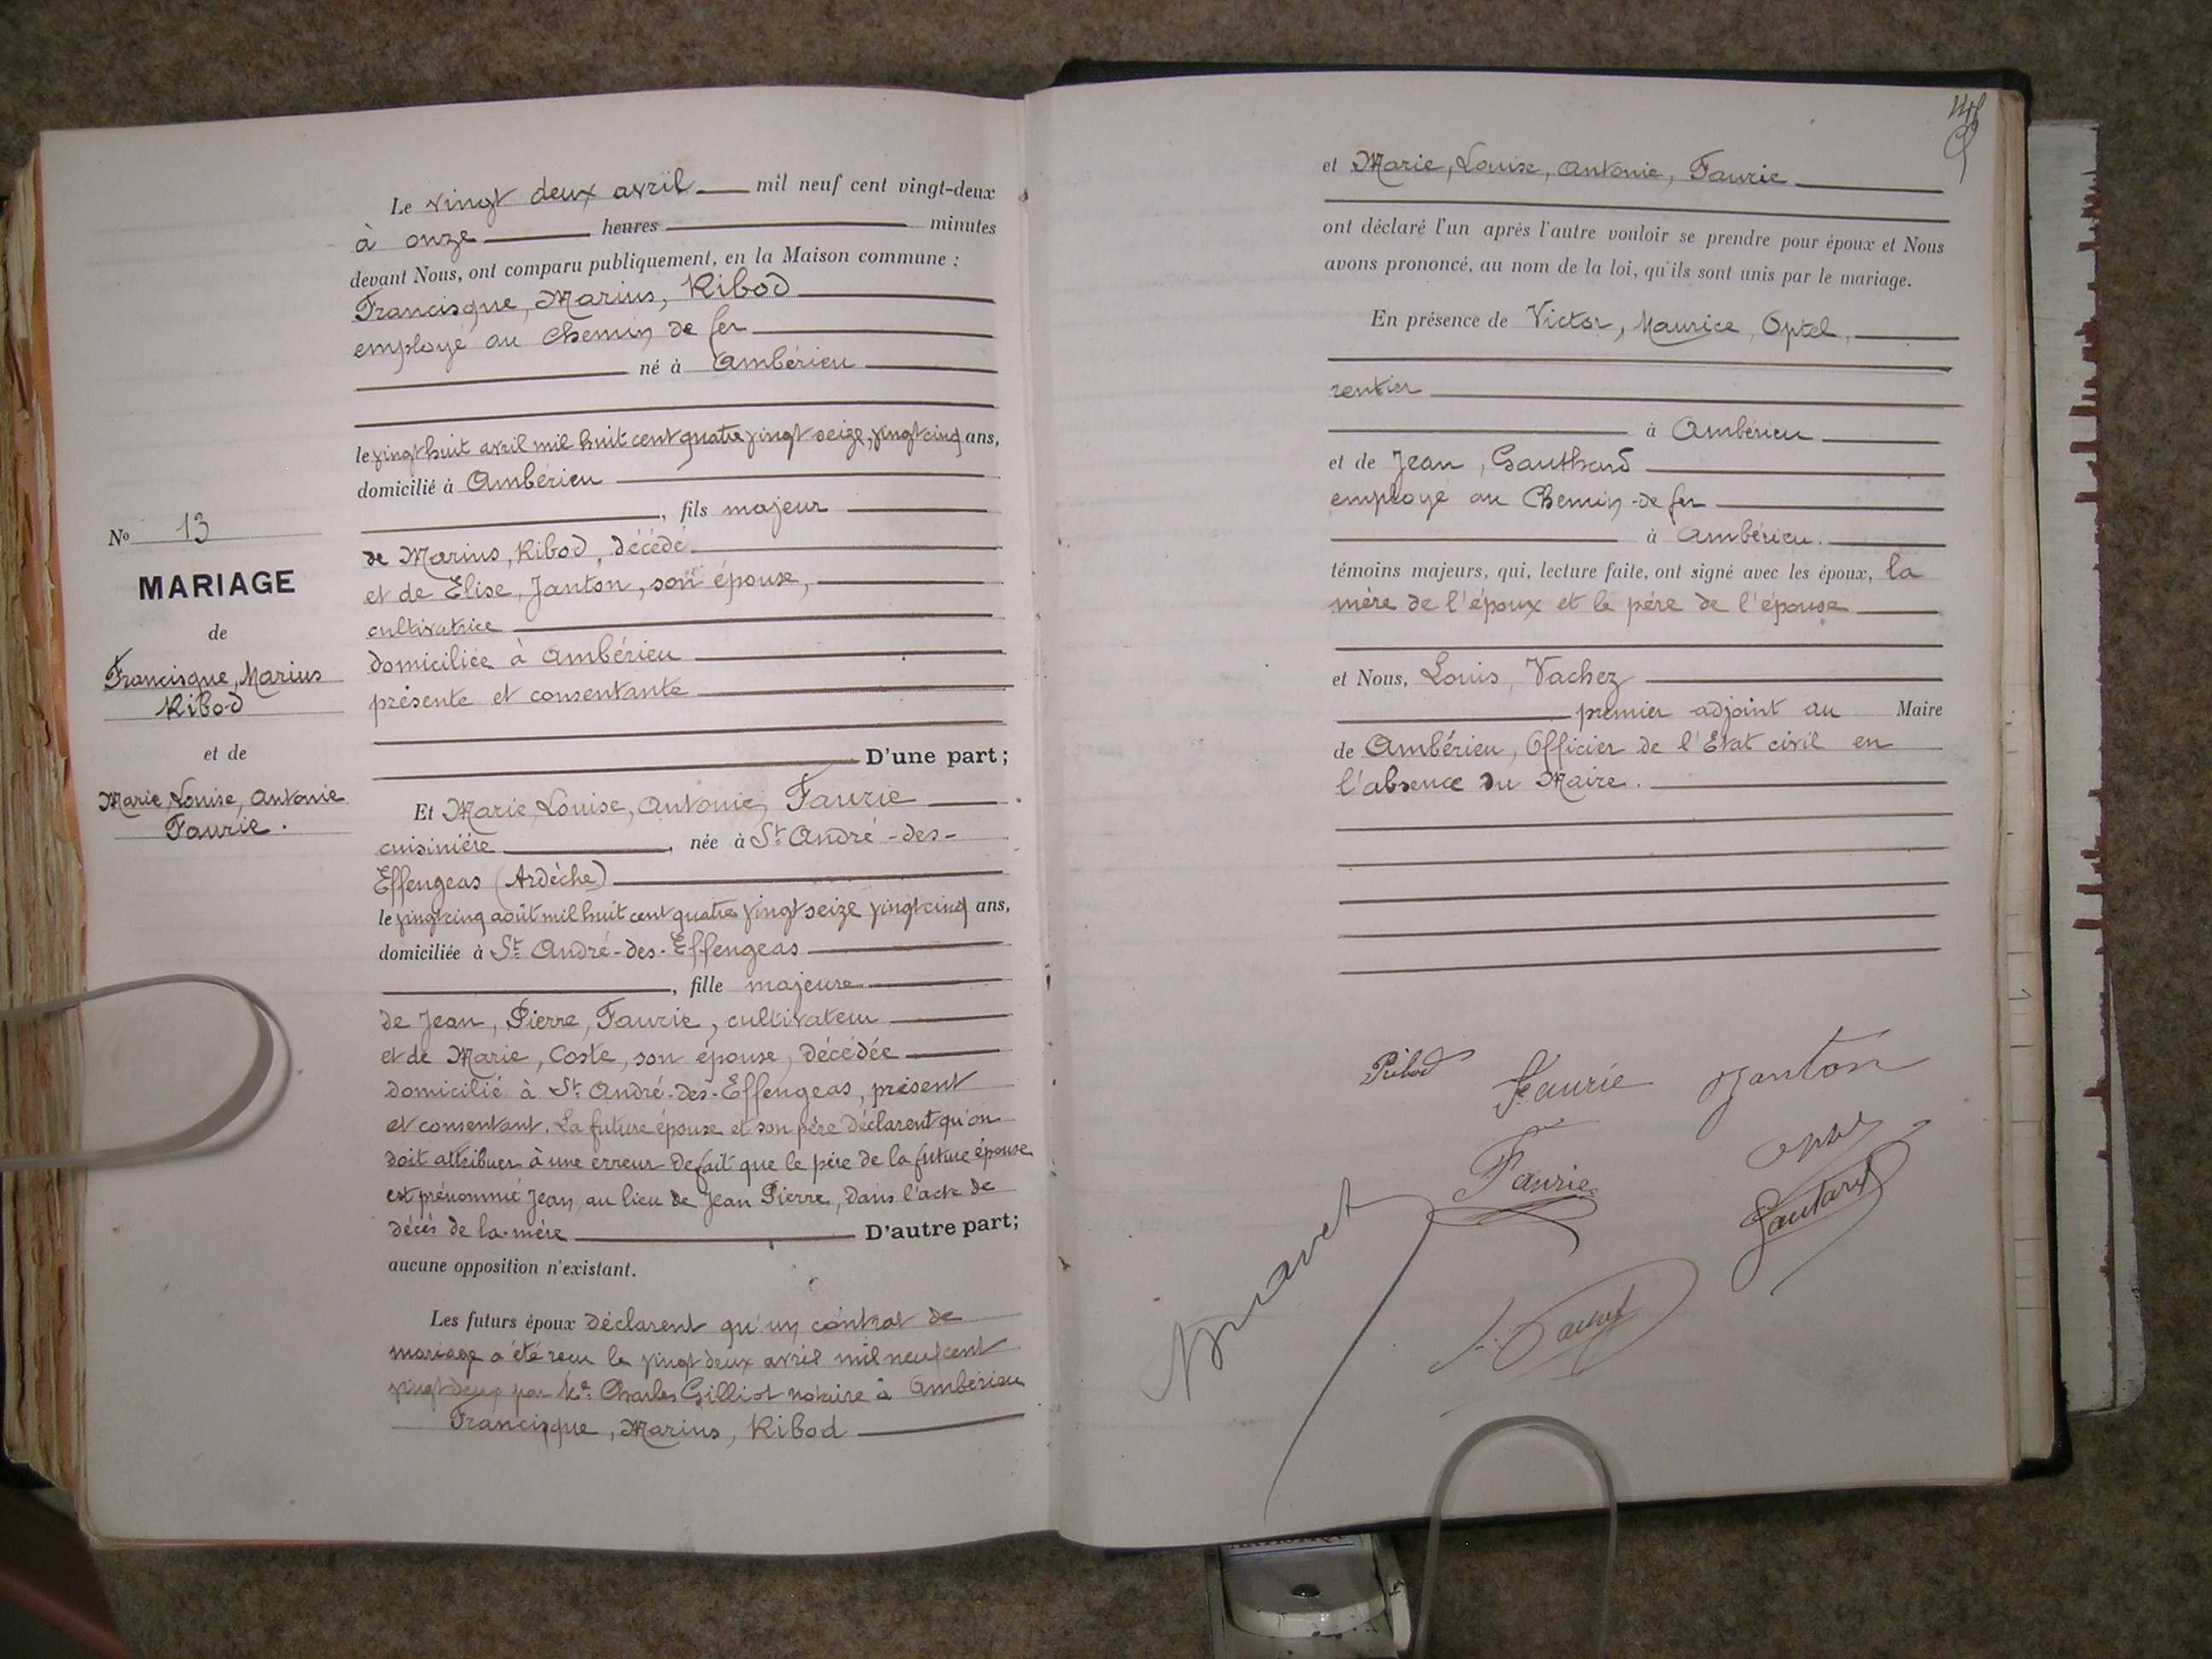 No 13
MARIAGE
de
Francisque, Marius
Ribod
et de
Marie, Louise, Antonie
Faurie.
Le vingt deux avril mil neuf cent vingt-deux
à onze heures minutes
devant Nous, ont comparu publiquement, en la Maison commune :
Francisque, Marius, Ribod
employé au chemin de fer
né à Ambérieu
le vingt huit avril mil huit cent quatre vingt seize, vingt cinq ans,
domicilié à Ambérieu
, fils majeur
de Marius, Ribod, décédé
et de Elise, Janton, son épouse,
cultivatrice
domiciliée à Ambérieu
présente et consentante
D'une part;
Et Marie, Louise, Antonie, Faurie
cuisinière, née à St André-des-
Effengeas (Ardèche)
le vingt cinq août mil huit cent quatre vingt seize vingt cinq ans,
domiciliée à St André-des-Effengeas
, fille majeure
de Jean, Pierre, Faurie, cultivateur
et de Marie, Coste, son épouse, décédée
domicilié à St André-des-Effengeas, présent
et consentant. La future épouse et son père déclarent qu'on
doit attribuer à une erreur de fait que le père de la future épouse
est prénommé Jean, au lieu de Jean Pierre, dans l'acte de
décès de la mère D'autre part;
aucune opposition n'existant.
Les futurs époux déclarent qu'un contrat de
mariage a été reçu le vingt deux avril mil neuf cent
vingt deux par Me Charles Gilliot notaire à Ambérieu
Francisque, Marius, Ribod
et Marie, Louise, Antonie, Faurie
ont déclaré l'un après l'autre vouloir se prendre pour époux et Nous
avons prononcé, au nom de la loi, qu'ils sont unis par le mariage.
En présence de Victor, Maurice, Optel,
rentier
à Ambérieu
et de Jean, Gauthard
employé au Chemin-de fer
à Ambérieu.
témoins majeurs, qui, lecture faite, ont signé avec les époux, la
mère de l'époux et le père de l'épouse
et Nous, Louis, Vachez
premier adjoint au Maire
de Ambérieu, Officier de l'Etat civil en
l'absence du Maire.
Ribod
Faurie
Janton
Faurie